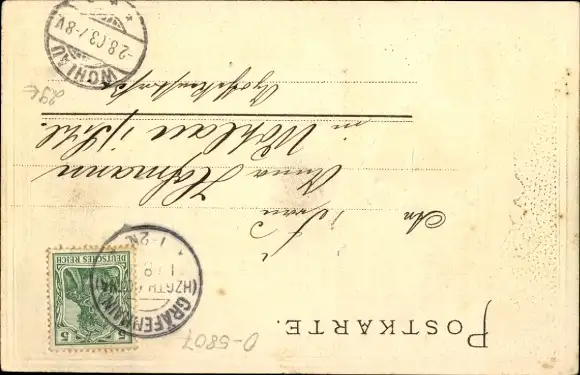 POSTKARTE.
D-5807
DEUTSCHES REICH
5
5
GRÄFENHAIN
(HZGTH. GOTHA)
1 8
1-2N.
An
Frau
Anna Hofmann
in Wohlau i/Schl.
WOHLAU
-2.8.03.7-8V